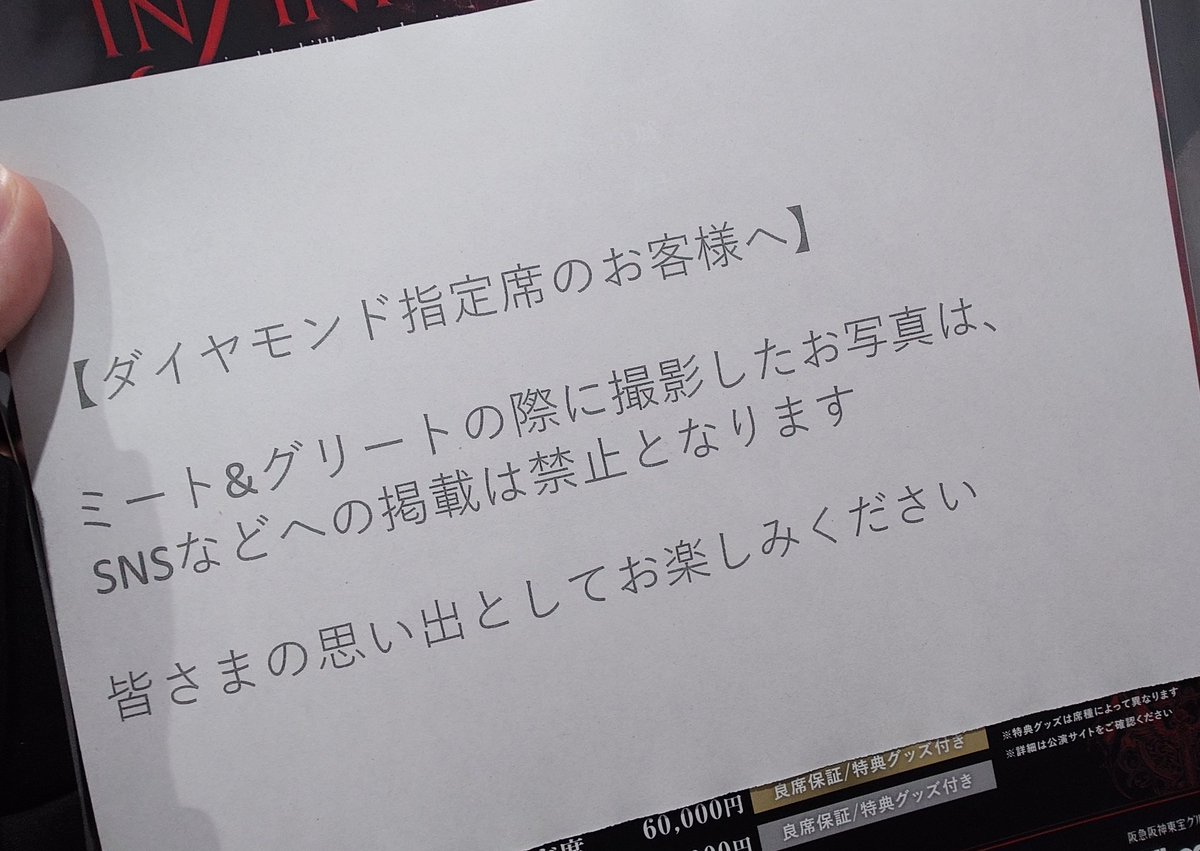 【ダイヤモンド指定席のお客様へ】
ミート&グリートの際に撮影したお写真は、
SNSなどへの掲載は禁止となります
皆さまの思い出としてお楽しみください
※特典グッズは席種によって異なります
※詳細は公演サイトをご確認ください
良席保証/特典グッズ付き
60,000円
良席保証/特典グッズ付き